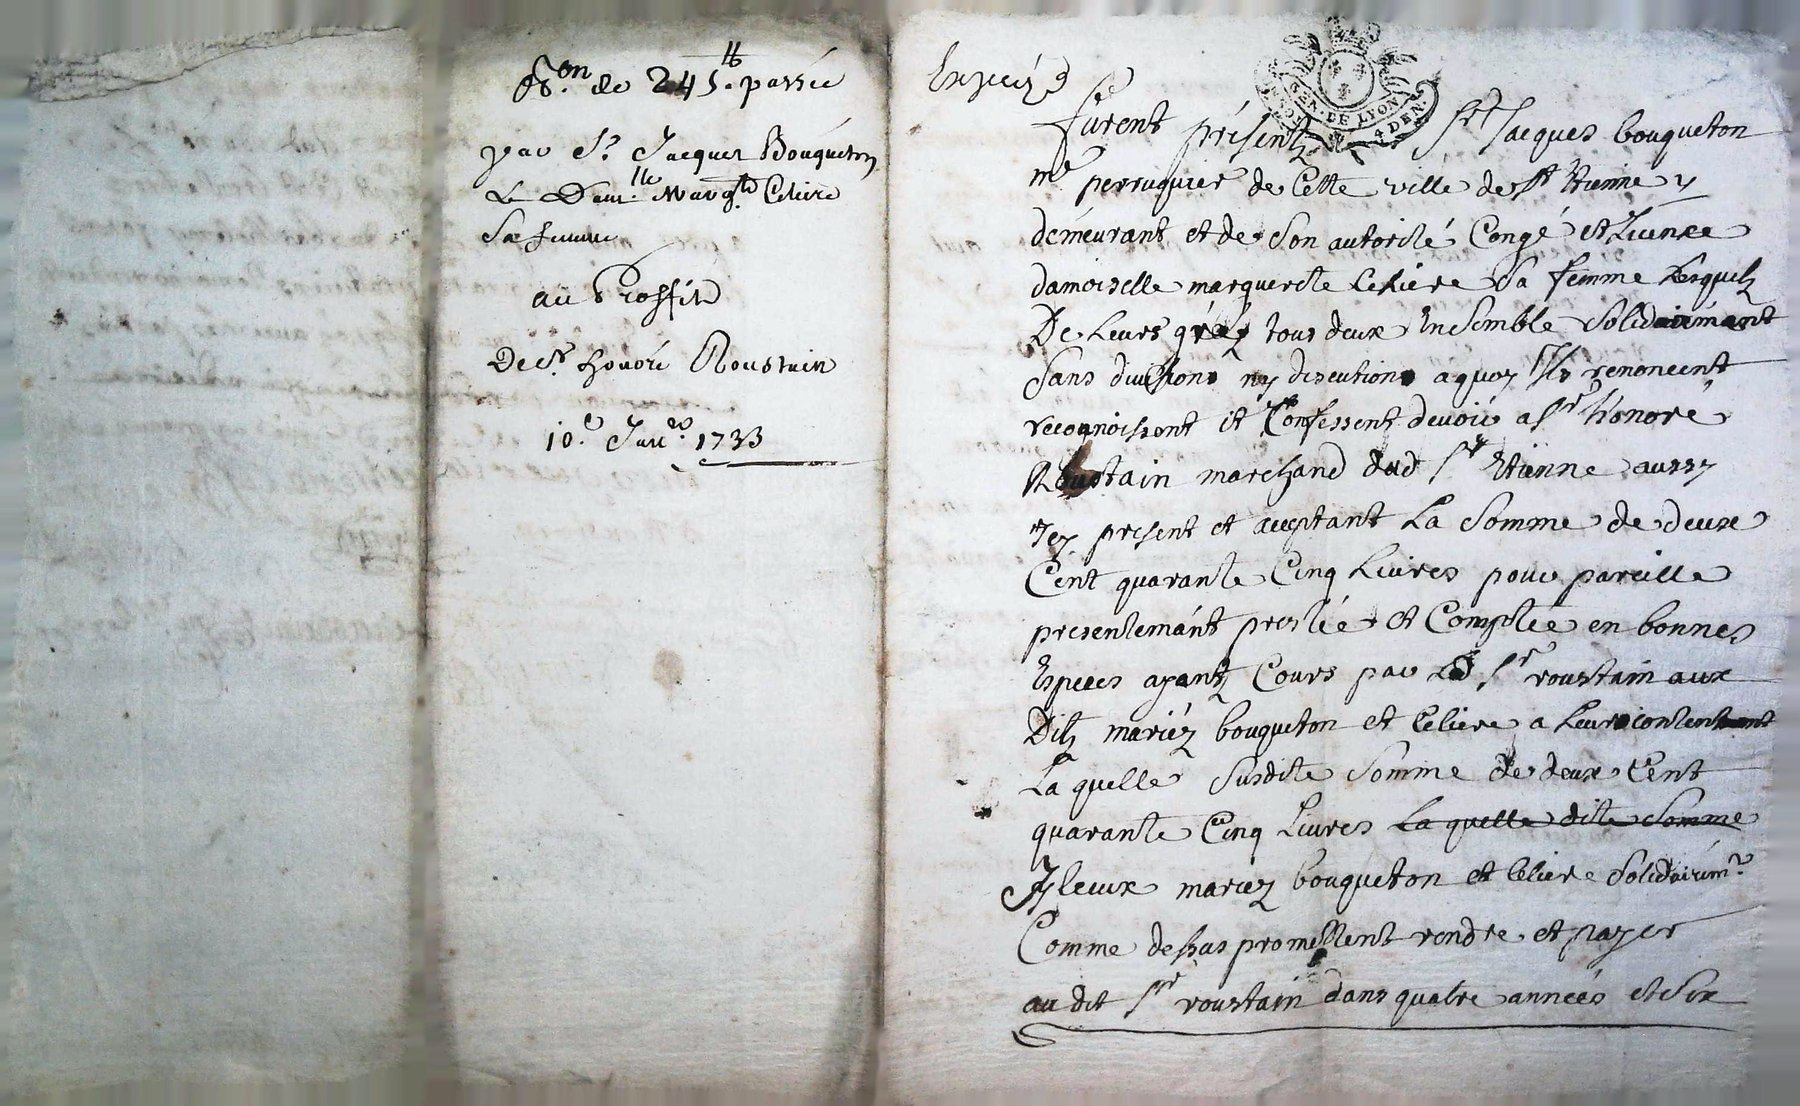 obon. de 245.lt passée
par Sr. Jacques Bouqueton
Le Demlle. Margte. Celiere
Sa femme
au Proffit
De Sr. honoré Roustain
10.e Janro. 1733
Expedié
furent présentz Sr Jacques bouqueton
me perruquier de Cette ville de St Etienne y
démeurant et de Son autorité Congé et Licence
damoiselle marguerite Celiere Sa femme Lesquelz
De Leurs gréz tous deux Ensemble Solidairemant
Sans division ny discution a quoy Ils renoncent
reconnoissent et Confessent devoir a Sr honoré
Roustain marchand dud St Etienne aussy
Icy present et aceptant La Somme de deux
Cent quarante Cinq Livres pour pareille
presentemánt prestée et Comptée en bonnes
Especes ayantz Cours par Led Sr roustain aux
Ditz mariéz bouqueton et Celiere a Leur contentemant
La quelle Susdite Somme de deux Cent
quarante Cinq Livres La quelle dite Somme
Iceux mariez bouqueton et Celiere Solidairemt.
Comme dessus promettent rendre et payer
au dit Sr roustain dans quatre années et Six
GEN. DE LYON
4 DEN.